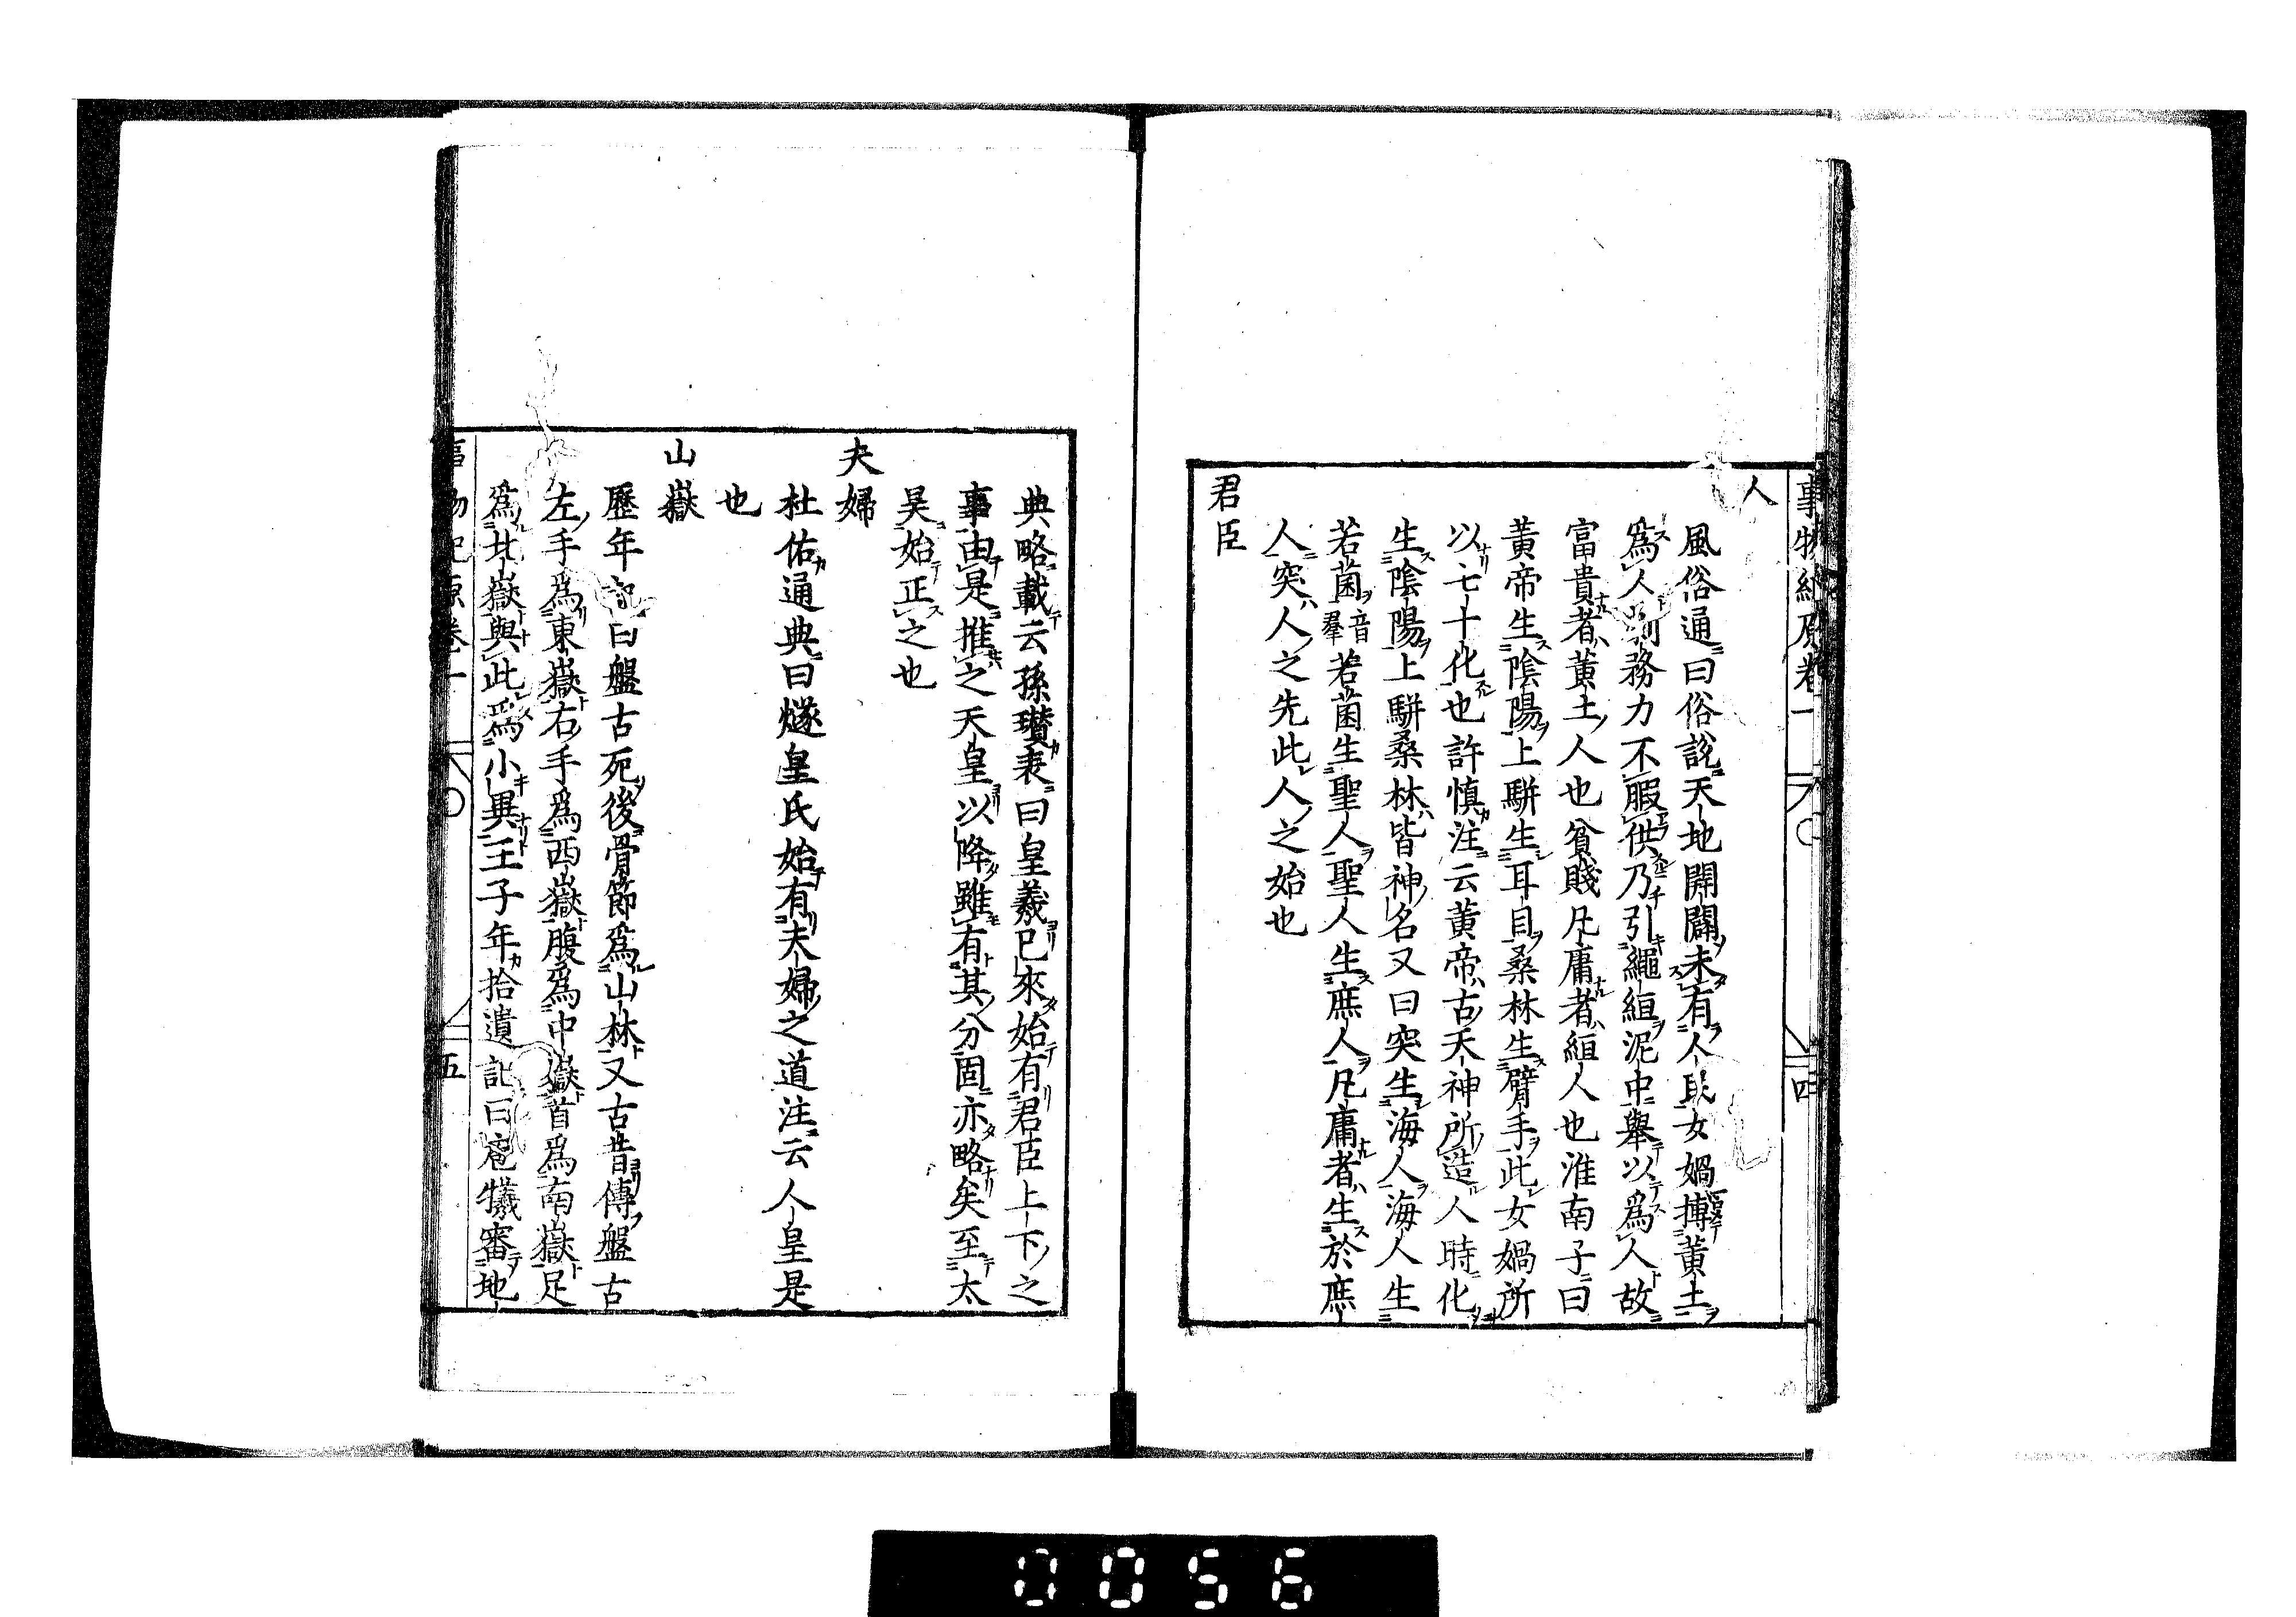 事物紀原卷一
四
人
風俗通曰俗說天地開闢未有人民女媧摶黃土
爲人劇務力不暇供乃引繩絚泥中舉以爲人故
富貴者黃土人也貧賤凡庸者絚人也淮南子曰
黃帝生陰陽上駢生耳目桑林生臂手此女媧所
以七十化也許慎注云黃帝古天神所造人時化
生陰陽上駢桑林皆神名又曰突生海人海人生
若菌音羣若菌生聖人聖人生庶人凡庸者生於庶
人突人之先此人之始也
君臣
典略載云孫瓚表曰皇羲已來始有君臣上下之
事由是推之天皇以降雖有其分固亦略矣至太
昊始正之也
夫婦
杜佑通典曰燧皇氏始有夫婦之道注云人皇是
也
山嶽
歷年記曰盤古死後骨節爲山林又古昔傳盤古
左手爲東嶽右手爲西嶽腹爲中嶽首爲南嶽足
爲北嶽與此爲小異王子年拾遺記曰庖犧審地
事物紀原卷一
五
0056